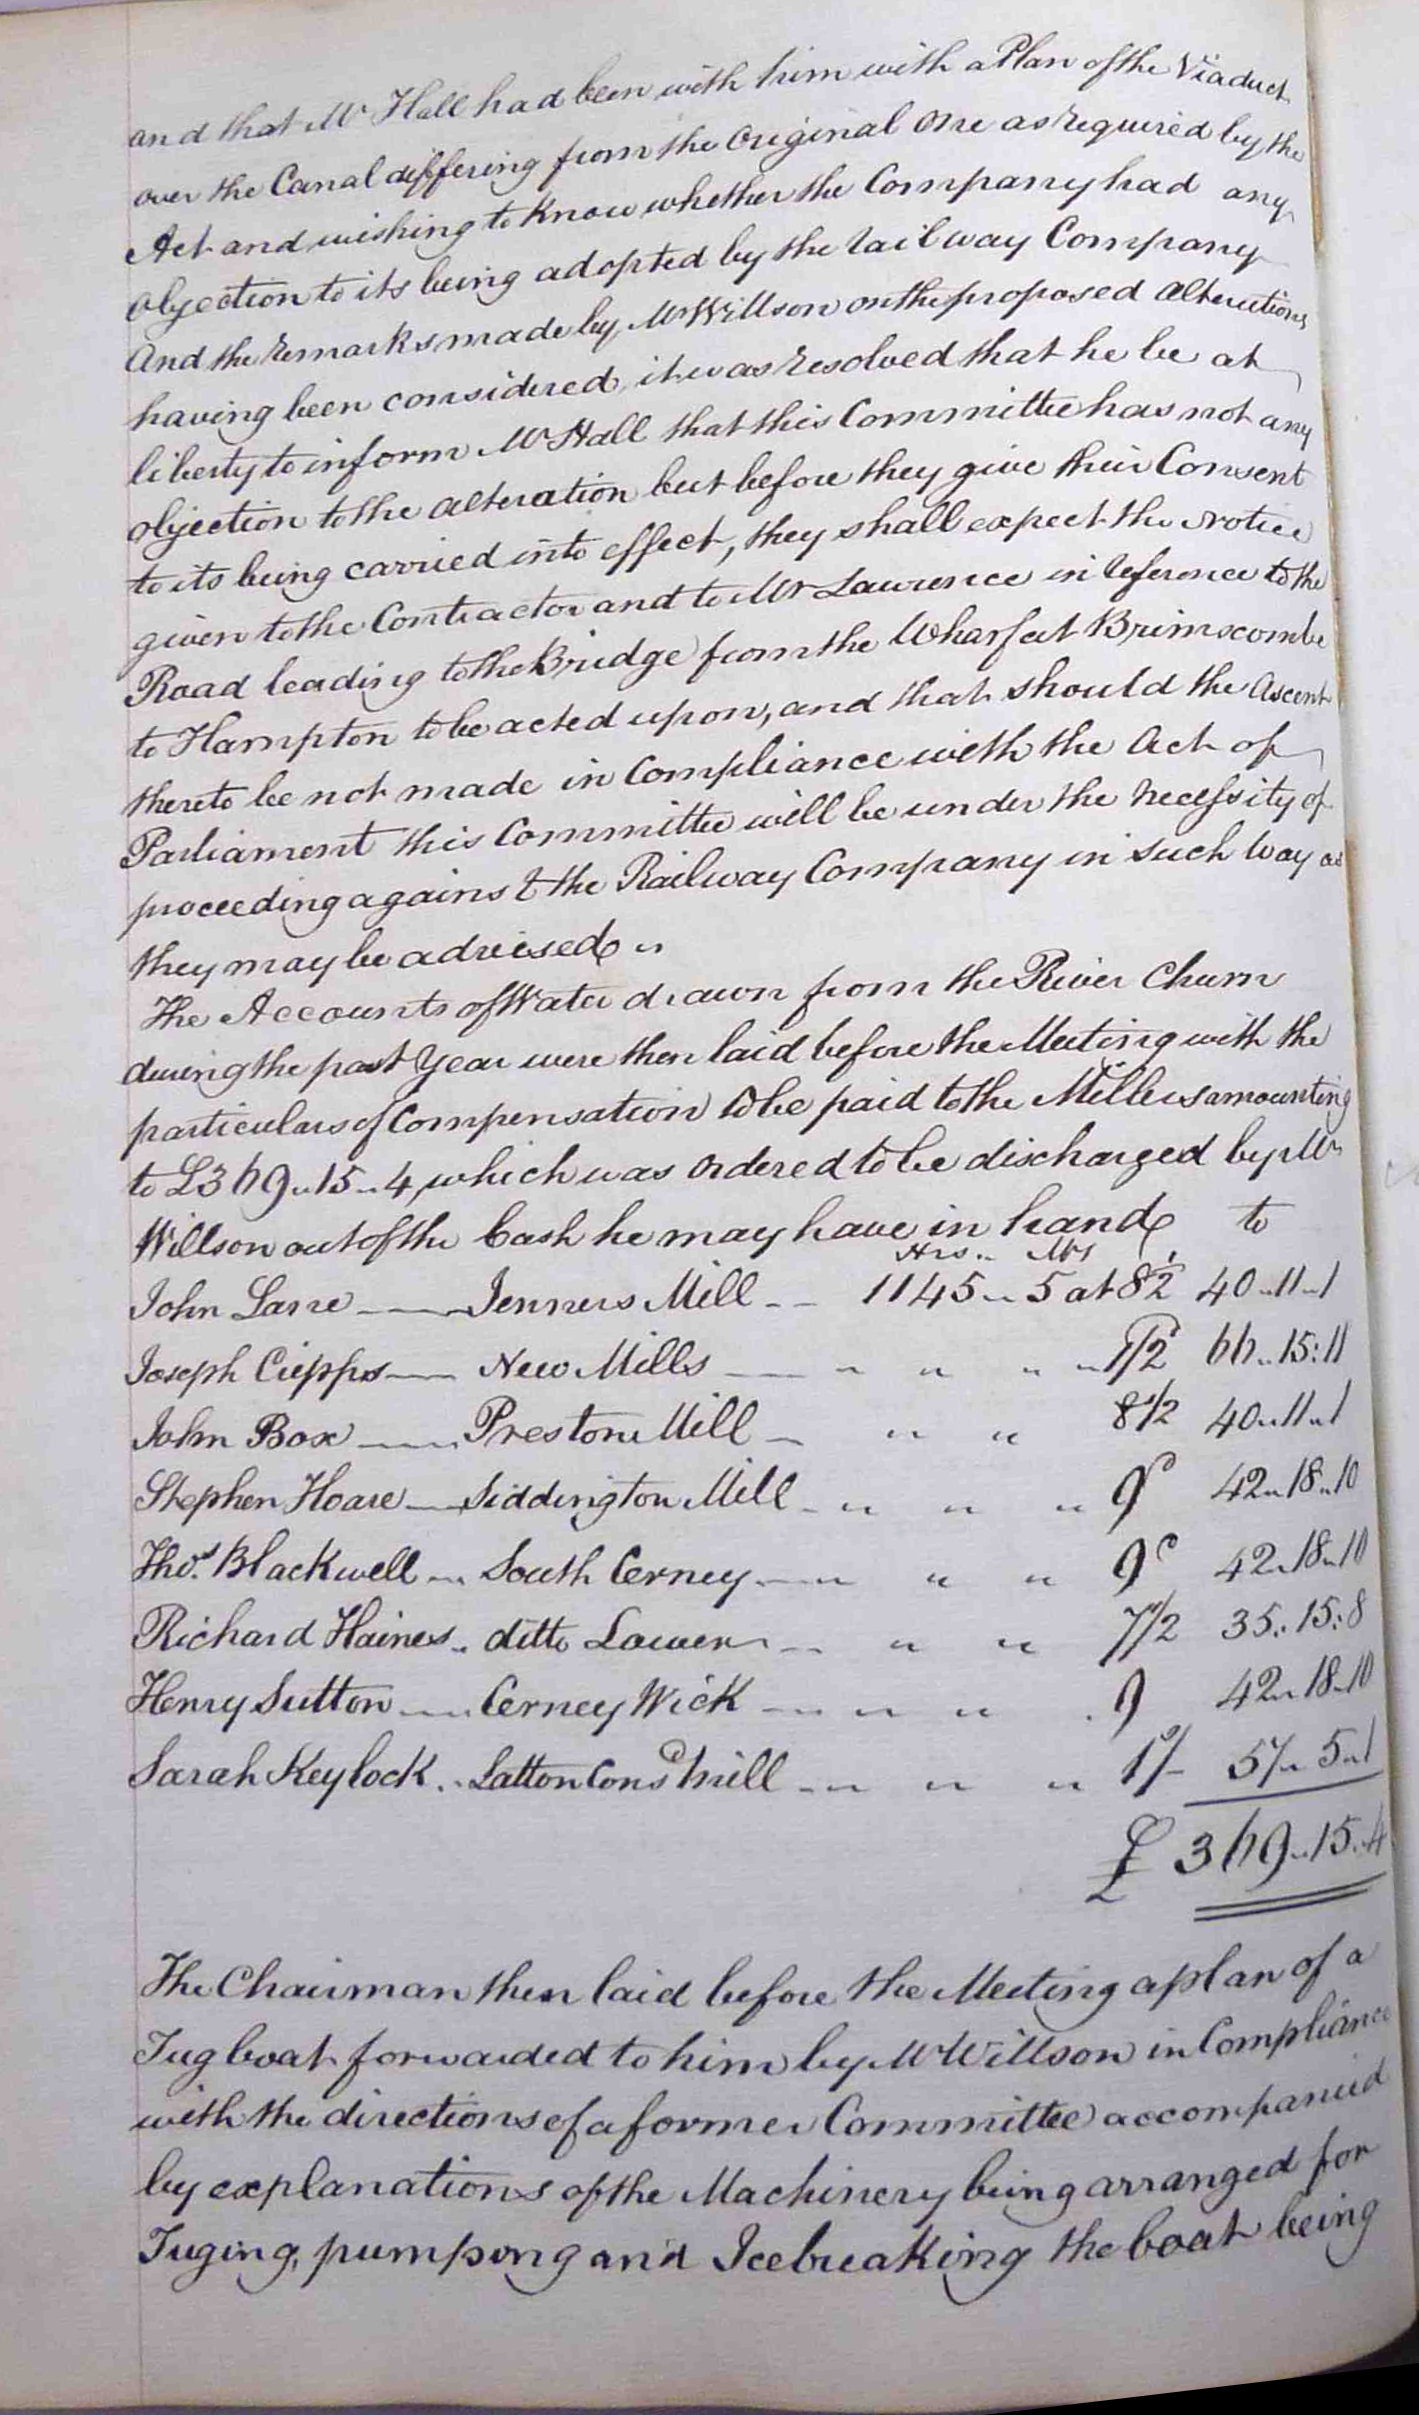 and that Mr Hall had been with him with a Plan of the Viaduct
over the Canal differing from the Original One as required by the
Act and wishing to Know whether the Company had any
objection to its being adopted by the railway Company
And the remarks made by Mr Willson on the proposed alterations
having been considered, it was resolved that he be at
liberty to inform Mr Hall that this Committee has not any
objection to the alteration but before they give their Consent
to its being carried into effect, they shall expect the Notice
given to the Contractor and to Mr Lawrence in reference to the
Road leading to the Bridge from the Wharf at Brimscombe
to Hampton to be acted upon, and that should the Ascent
thereto be not made in Compliance with the Act of
Parliament this Committee will be under the necessity of
proceeding against the Railway Company in such Way as
they may be advised "
The Accounts of Water drawn from the River Churn
during the past Year were then laid before the Meeting with the
particulars of Compensation to be paid to the Millers amounting
to £369 " 15 " 4 which was Ordered to be discharged by Mr
Willson out of the Cash he may have in hand to
Hrs " Mts
John Lane — Jenners Mill — 1145 " 5 at 8½ 40 " 11 " 1
Joseph Cripps — New Mills — " " " " 1/2 66 " 15 : 11
John Box — Preston Mill — " " 8½ 40 " 11 " 1
Stephen Hoare — Siddington Mill — " " " 9d 42 " 18 " 10
Thos. Blackwell " South Cerney — " " " 9d 42 " 18 " 10
Richard Haines " ditto Lower — " " 7½ 35 : 15 : 8
Henry Sutton — Cerney Wick — " " " 9 42 " 18 " 10
Sarah Keylock " Latton Consd Mill — " " " 1/- 57 " 5 " 1
£ 369 " 15 " 4
The Chairman then laid before the Meeting a plan of a
Tug boat forwarded to him by Mr Willson in Compliance
with the directions of a former Committee accompanied
by explanations of the Machinery being arranged for
Tuging, pumping and Icebreaking the boat being